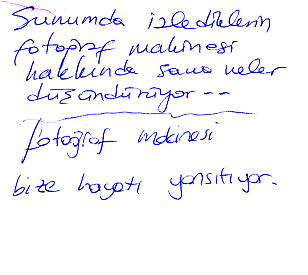 Sunumda izlediklerin
fotoğraf makinesi
hakkında sana neler
düşündürüyor --
fotoğraf makinesi
bize hayatı yansıtıyor.